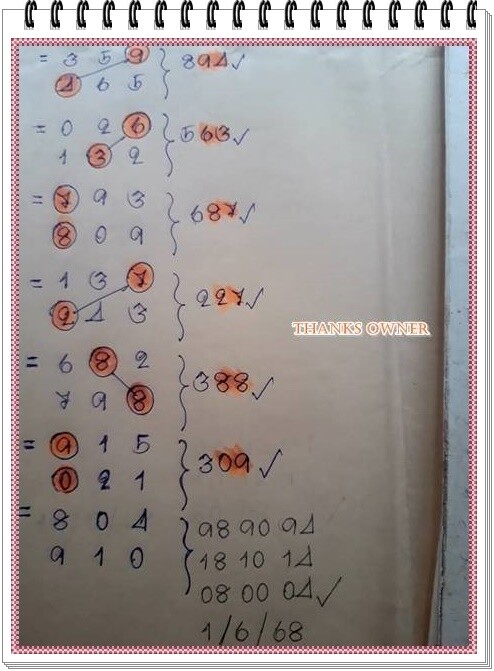 = 3 5 9 } 894 ✓
4 6 5
= 0 2 6 } 563 ✓
1 3 2
= 7 9 3 } 687 ✓
8 0 9
= 1 3 7 } 227 ✓
2 4 3
THANKS OWNER
= 6 8 2 } 388 ✓
7 9 8
= 9 1 5 } 309 ✓
0 2 1
= 8 0 4 } 98 90 94
9 1 0 18 10 14
08 00 04 ✓
1/6/68